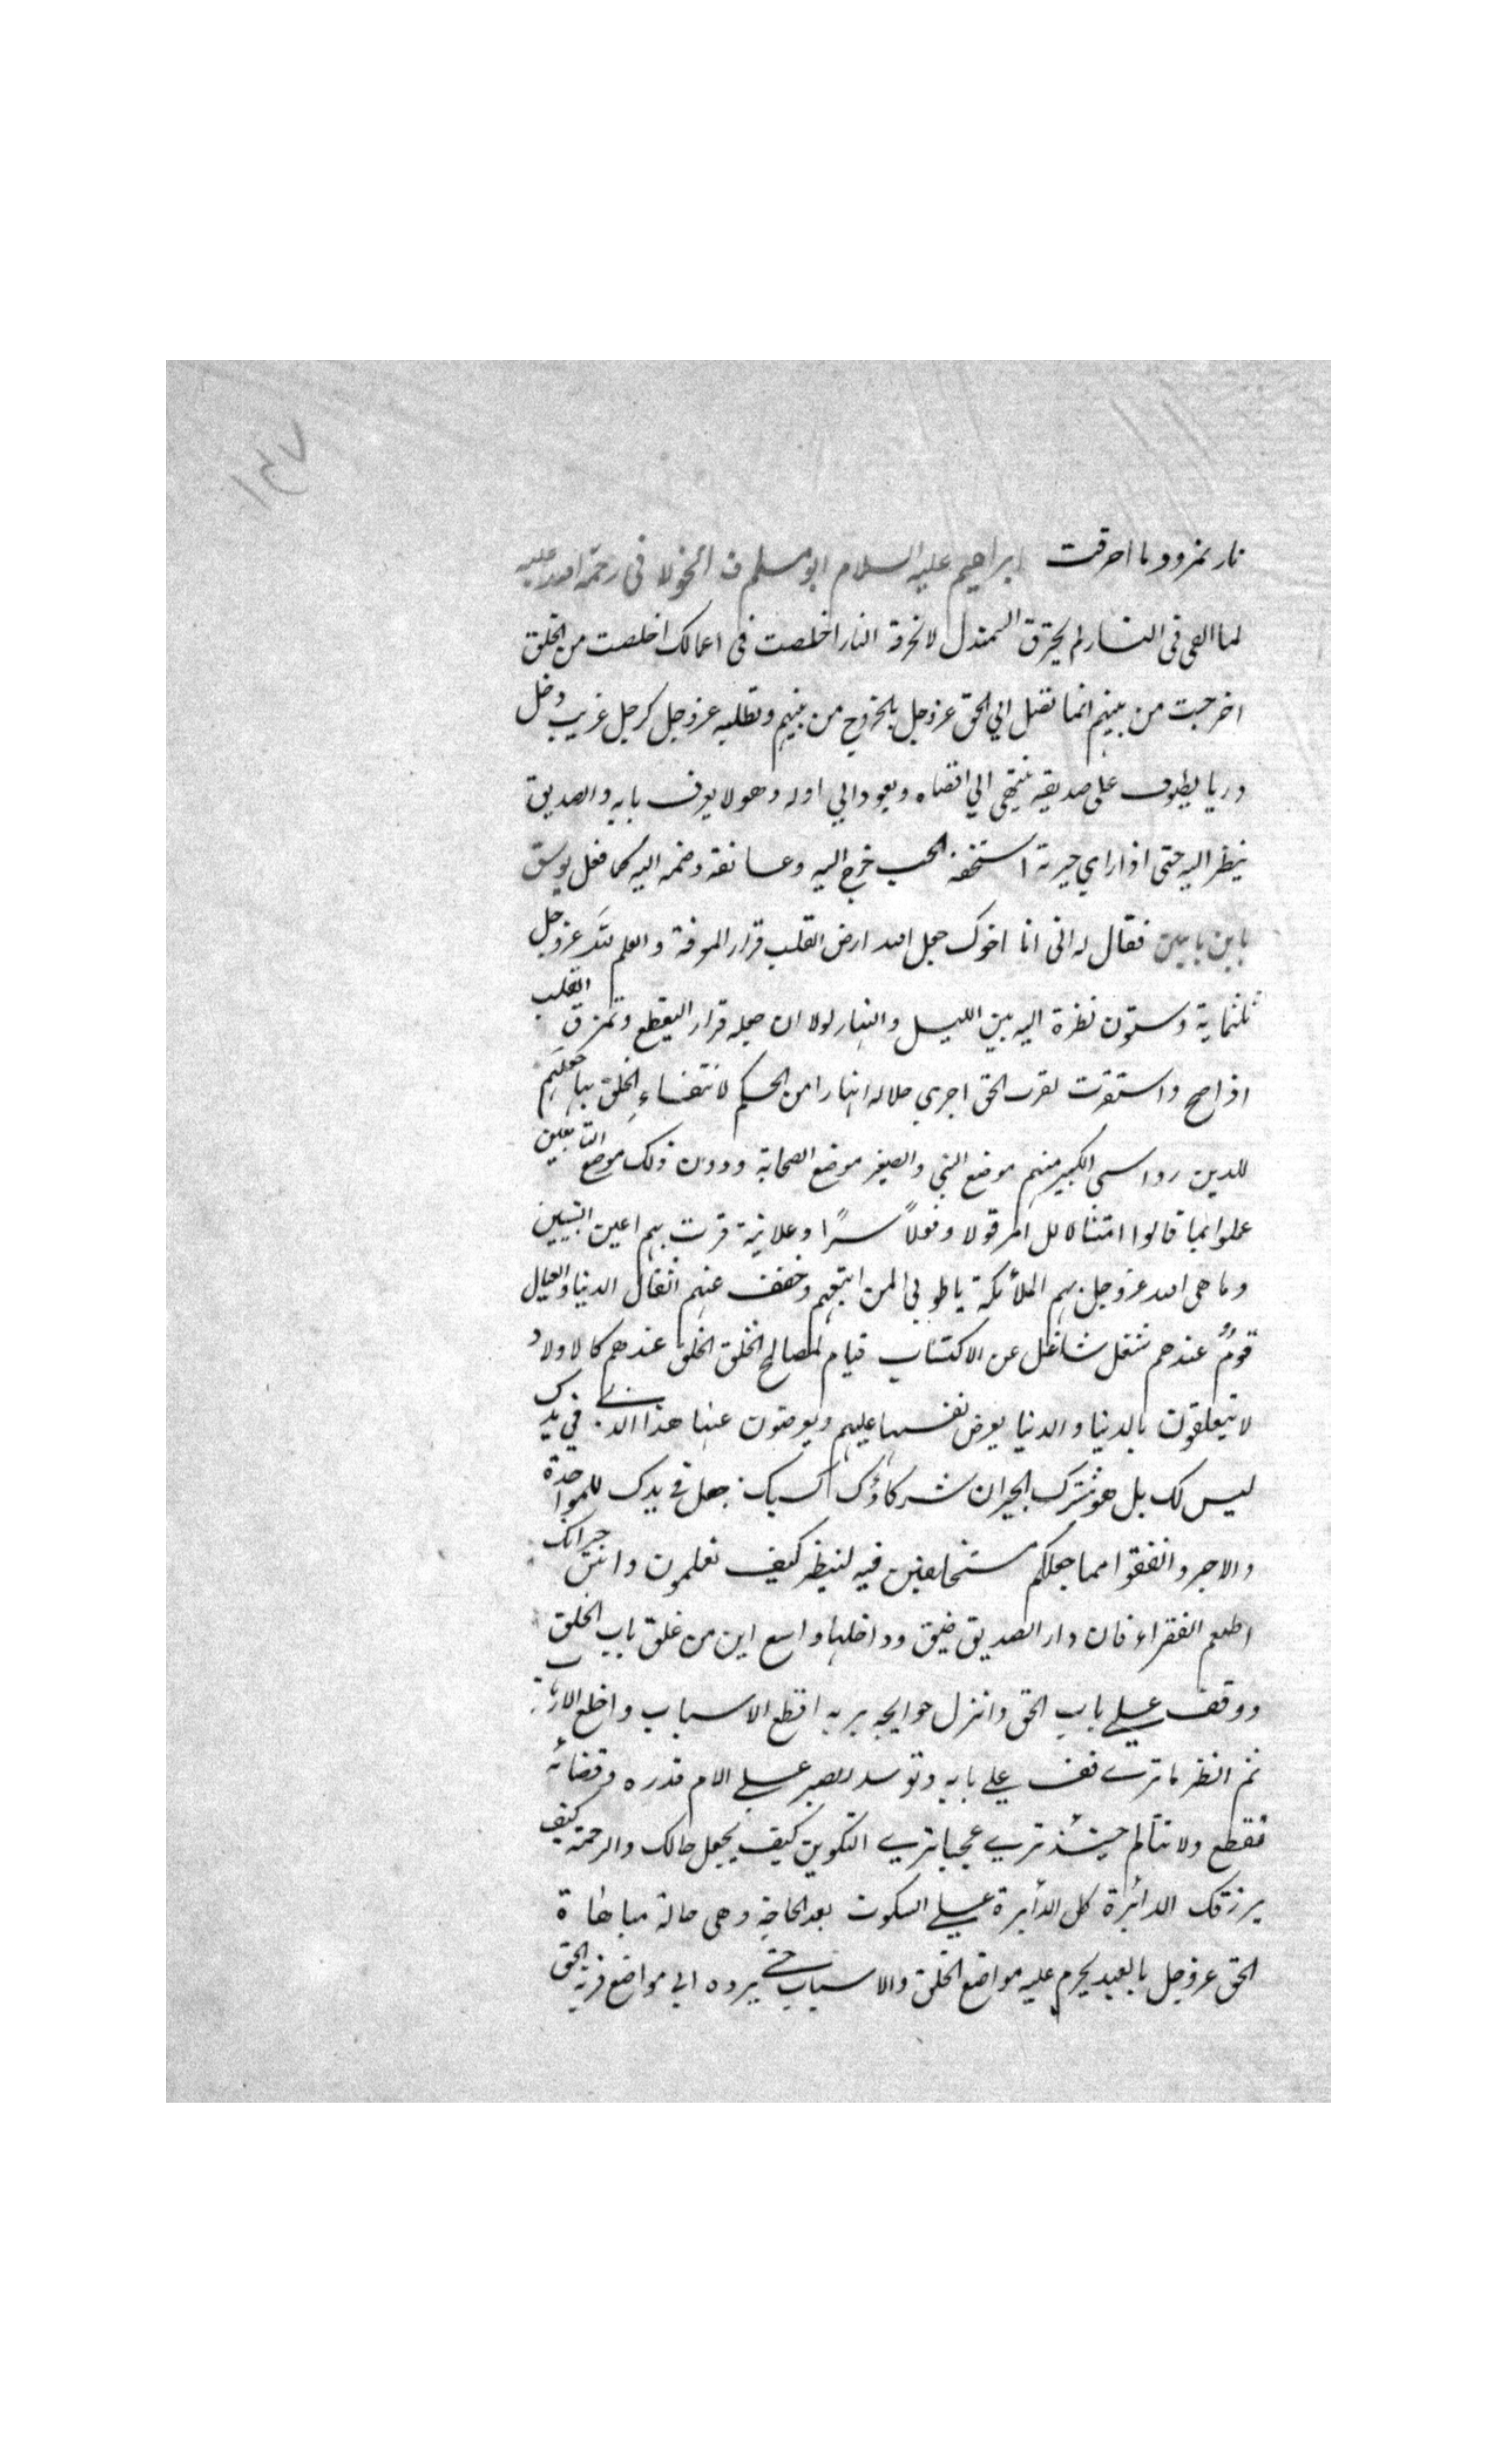 ١٤٧
نار نمرود ما احرقت ابراهيم عليه السلام ابو مسلم الخولانى رحمة الله عليه
لما القى فى النار لم يحترق السمندل لا تحرقه النار اخلصت فى اعمالك اخلصت من الخلق
اخرجت من بينهم انما تقبل الي الحق عزوجل بالخروج من بينهم وتطلبه عزوجل كرجل غريب دخل
دربا يطوف على صديقه ينتهى الي اقصاه ويعود الي اوله وهو لا يعرف بابه والصديق
ينظر اليه حتى اذا راي حيرته استخفه الحب خرج اليه وعانقه وضمه اليه كما فعل يوسف
بابن يامين فقال له انى انا اخوك جعل الله ارض القلب قرار المعرفة والعلم لله عزوجل
ثلثماية وستون نظرة اليه بين الليل والنهار لولا ان جعله قرارا لتقطع وتمزق القلب
اذا صح واستقرت لقرب الحق اجري خلاله انهارا من الحكم لانتفاء الخلق بها جعلهم
للدين رواسى الكبير منهم موضع النبي والصغير موضع الصحابة ودون ذلك موضع التابعين
عملوا بما قالوا امتثالا للامر قولا وفعلاً سرًا وعلانية قرت بهم اعين النبيين
وباهى الله عزوجل بهم الملائكة يا طوبي لمن اتبعهم وخفف عنهم اثقال الدنيا والعيال
قومٌ عندهم شغل شاغل عن الاكتساب قيام لمصالح الخلق الخلق عندهم كالاولاد
لا يتعلقون بالدنيا والدنيا يعرض نفسها عليهم ويعرضون عنها هذا الذي في يدك
ليس لك بل هو مشترك الجيران شركاؤك كسبك جعل في يدك للمواخذة
والاجر وانفقوا مما جعلكم مستخلفين فيه لينظر كيف تعلمون وانتش جيرانك
اطعم الفقراء فان دار الصديق ضيق وداخلها واسع اين من غلق باب الخلق
ووقف علي باب الحق وانزل حوايجه بربه اقطع الاسباب واخلع الارباب
ثم انظر ما تري قف علي بابه وتوسد الصبر علي الام قدره وقضائه
فقطع ولا تتألم حينئذ تري عجبا تري التكوين كيف يجعل حالك والرحمة كيف
يرزقك الدائرة كل الدائرة علي السكون بعد الحاجة وهى حالة مباهاة
الحق عزوجل بالعبد يحرم عليه مواضع الخلق والاسباب حتي يرده الي مواضع قربة الحق